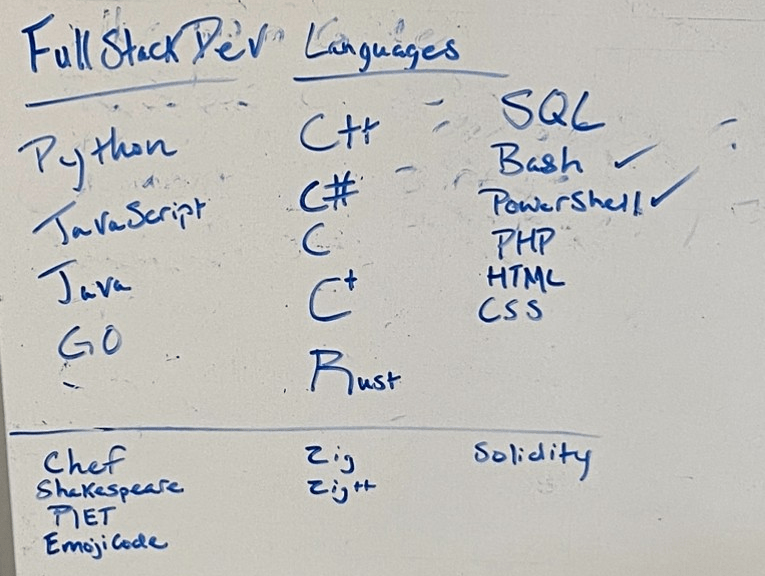 Full Stack Dev Languages
Python
JavaScript
Java
GO
C++
C#
C
C+
Rust
SQL
Bash ✓
PowerShell ✓
PHP
HTML
CSS
Chef
Shakespeare
PIET
EmojiCode
Zig
Zig++
Solidity